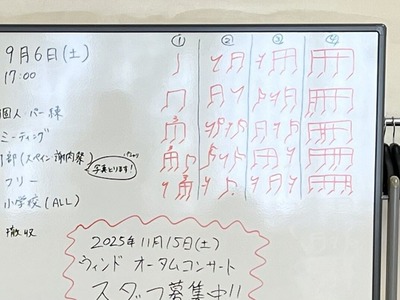 9月6日(土)
17:00
個人・パー練
ミーティング
部(スペイン 謝肉祭)
写真とります!
フリー
小学校(ALL)
撤収
① ② ③ ④
2025年11月15日(土)
ウィンド オータムコンサート
スタッフ募集中!!